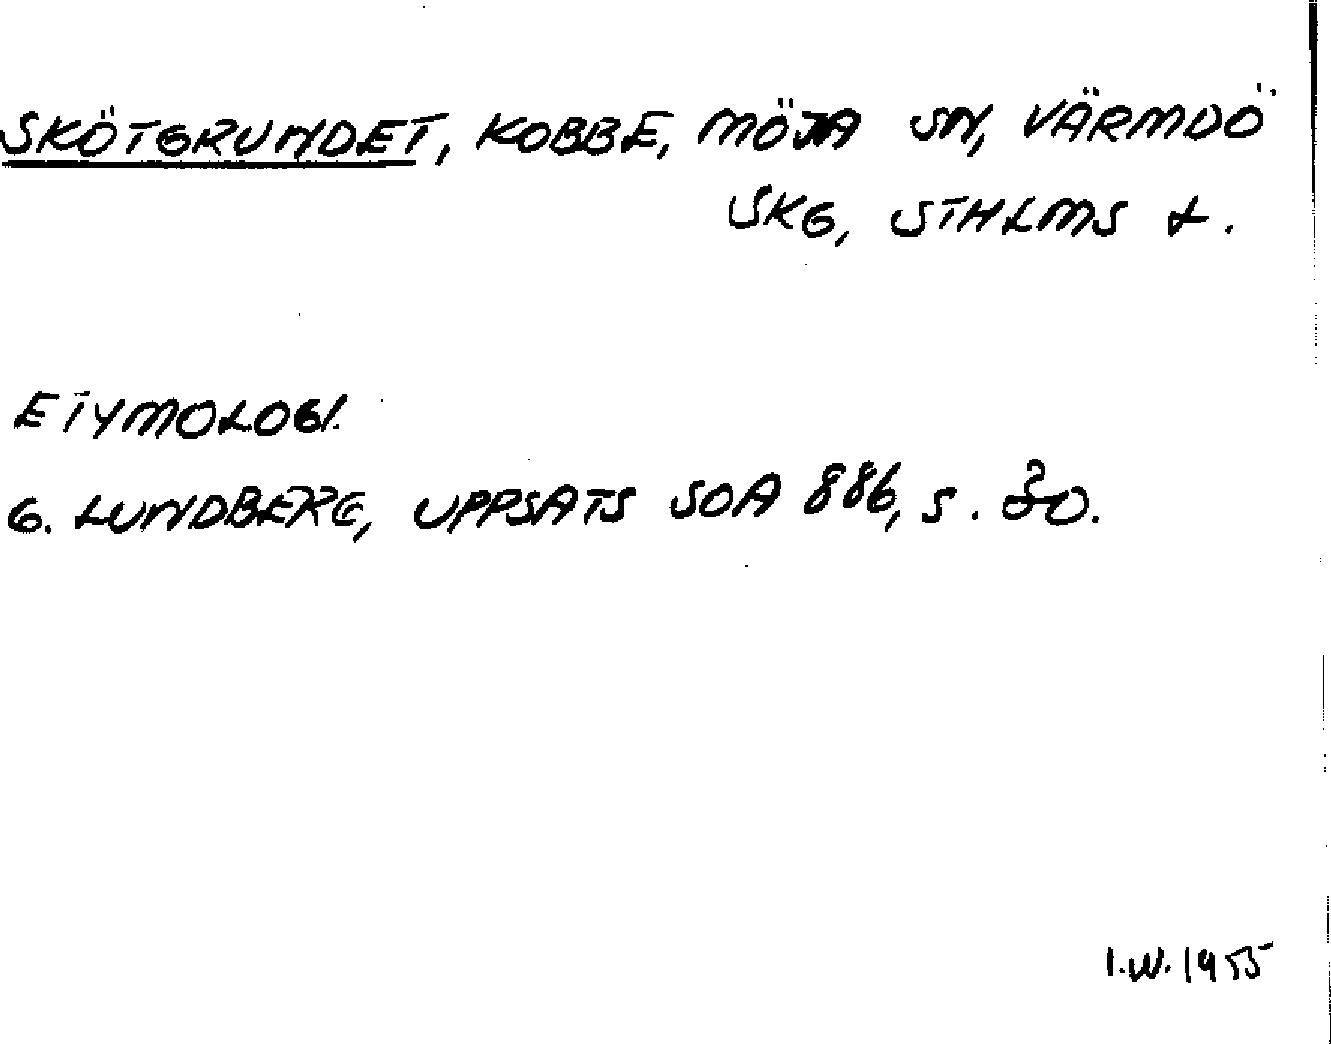 SKÖTGRUNDET, KOBBE, MÖJA SN, VÄRMDÖ
SKG, STHLMS L.
ETYMOLOGI.
G. LUNDBERG, UPPSATS SOA 886, S. 20.
I.W. 1955